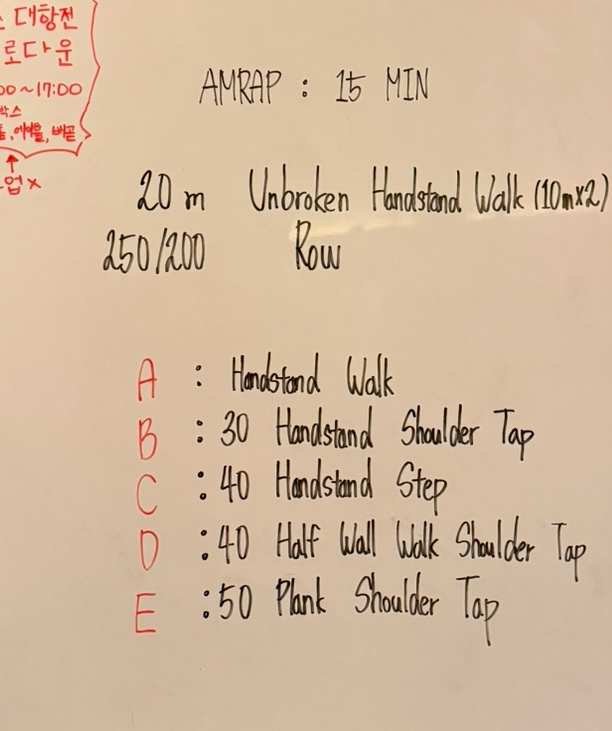 대항전
로다운
00~17:00
박스
AMRAP : 15 MIN
20 m Unbroken Handstand Walk (10m×2)
250/200 Row
A : Handstand Walk
B : 30 Handstand Shoulder Tap
C : 40 Handstand Step
D : 40 Half Wall Walk Shoulder Tap
E : 50 Plank Shoulder Tap